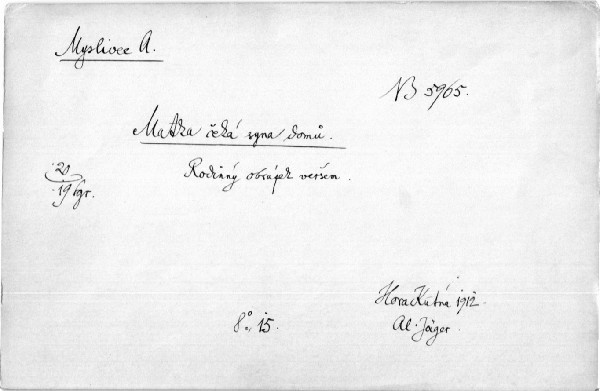 Myslivec A.
NB 5965.
Matka čeká syna domů.
Rodinný obrázek veršem.
20
19
Hora Kutná 1912.
Al. Jäger.
8°. 15.